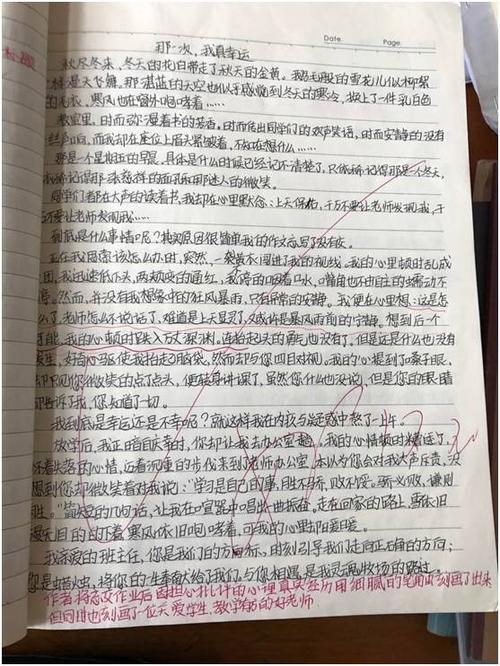 Date.  Page.
那一次，我真幸运
秋尽冬来，冬天的花白带走了秋天的金黄。鹅毛般的雪花儿似柳絮
漫天飞舞，那湛蓝的天空也似乎感触到冬天的寒冷，换上了一件乳白色
的毛衣，寒风也在窗外咆哮着……
教室里，时而弥漫着书的茗香，时而传出同学们的欢声笑语，时而安静的没有
丝声响，而我却在座位上眉头紧皱着，不知在想什么……
那是一个星期五的早晨，具体是什么时候已经记不清楚了，只依稀记得那是个冬天，
记得那一张慈祥的面孔和那迷人的微笑。
同学们都在大声的读着书，我却在心里默念：上天保佑，千万不要让老师发现我，千
不要让老师发现我……
到底是什么事情呢？其实原因很简单我的作文忘写了没有交。
正在我困惑该怎么办时，突然，一袭黄衣闯进了我的视线。我的心里顿时乱成
团，我迅速低下头，两颊烧的通红，我停的咽着口水，嘴角也不由自主的抽动不
停。然而，并没有我想象中的狂风暴雨，只有异常的安静。我便在心里想：这是怎
么了，老师怎么不说话了，难道是上天显灵，又或许是暴风雨前的宁静。想到后一个
可能，我的心顿时跌入万丈深渊。连抬起头的勇气也没有了，但是还是什么也没有
发生，好奇心驱使我抬起了脑袋，然而却与您四目对视。我的心提到了嗓子眼，
却只见您微笑的点了点头，便转身讲课了，虽然您什么也没说，但是您的眼睛
却告诉了我，您知道了一切。
我到底是幸运还是不幸呢？就这样我在内疚与忐忑中熬了一上午。
放学后，我正暗自庆幸时，您却让我去办公室，我的心情顿时糟透了，
怀着失落的心情，迈着沉重的步伐来到了老师办公室，本以为您会对我大声斥责，没
想到您却微笑着对我说："学习是自己的事，胜不骄，败不馁。新必败，谦则
胜。"简短的几句话，让我在心里不禁唱出曲振奋，走在回家的路上，雪依旧
漫无目的的下着，寒风依旧咆哮着，可我的心里却回暖。
我亲爱的班主任，您是我们的方向标，时刻引导我们走向正确的方向；
您是蜡烛，将您的一生奉献给了我们。与您相遇，是我灵魂收场的路过。
作者将忘交作业后因担心批评的心理真实经历用细腻的笔触刻画了出来
但同时也刻画了一位关爱学生，教学有方的好老师